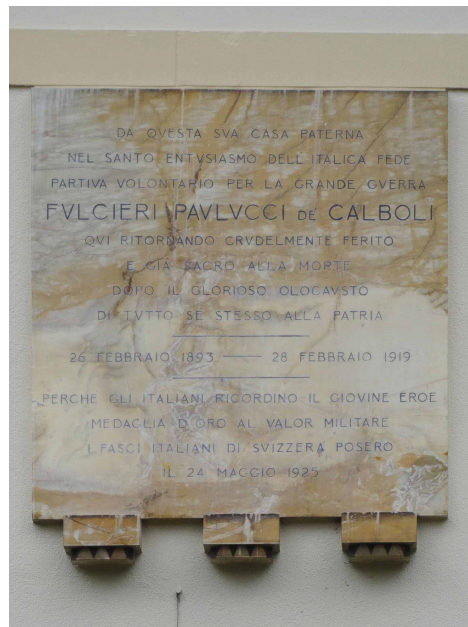 DA QVESTA SVA CASA PATERNA
NEL SANTO ENTVSIASMO DELL'ITALICA FEDE
PARTIVA VOLONTARIO PER LA GRANDE GVERRA
FVLCIERI PAVLVCCI DE CALBOLI
QVI RITORNANDO CRVDELMENTE FERITO
E GIÀ SACRO ALLA MORTE
DOPO IL GLORIOSO OLOCAVSTO
DI TVTTO SE STESSO ALLA PATRIA
26 FEBBRAIO 1893 — 28 FEBBRAIO 1919
PERCHE GLI ITALIANI RICORDINO IL GIOVINE EROE
MEDAGLIA D'ORO AL VALOR MILITARE
I FASCI ITALIANI DI SVIZZERA POSERO
IL 24 MAGGIO 1925